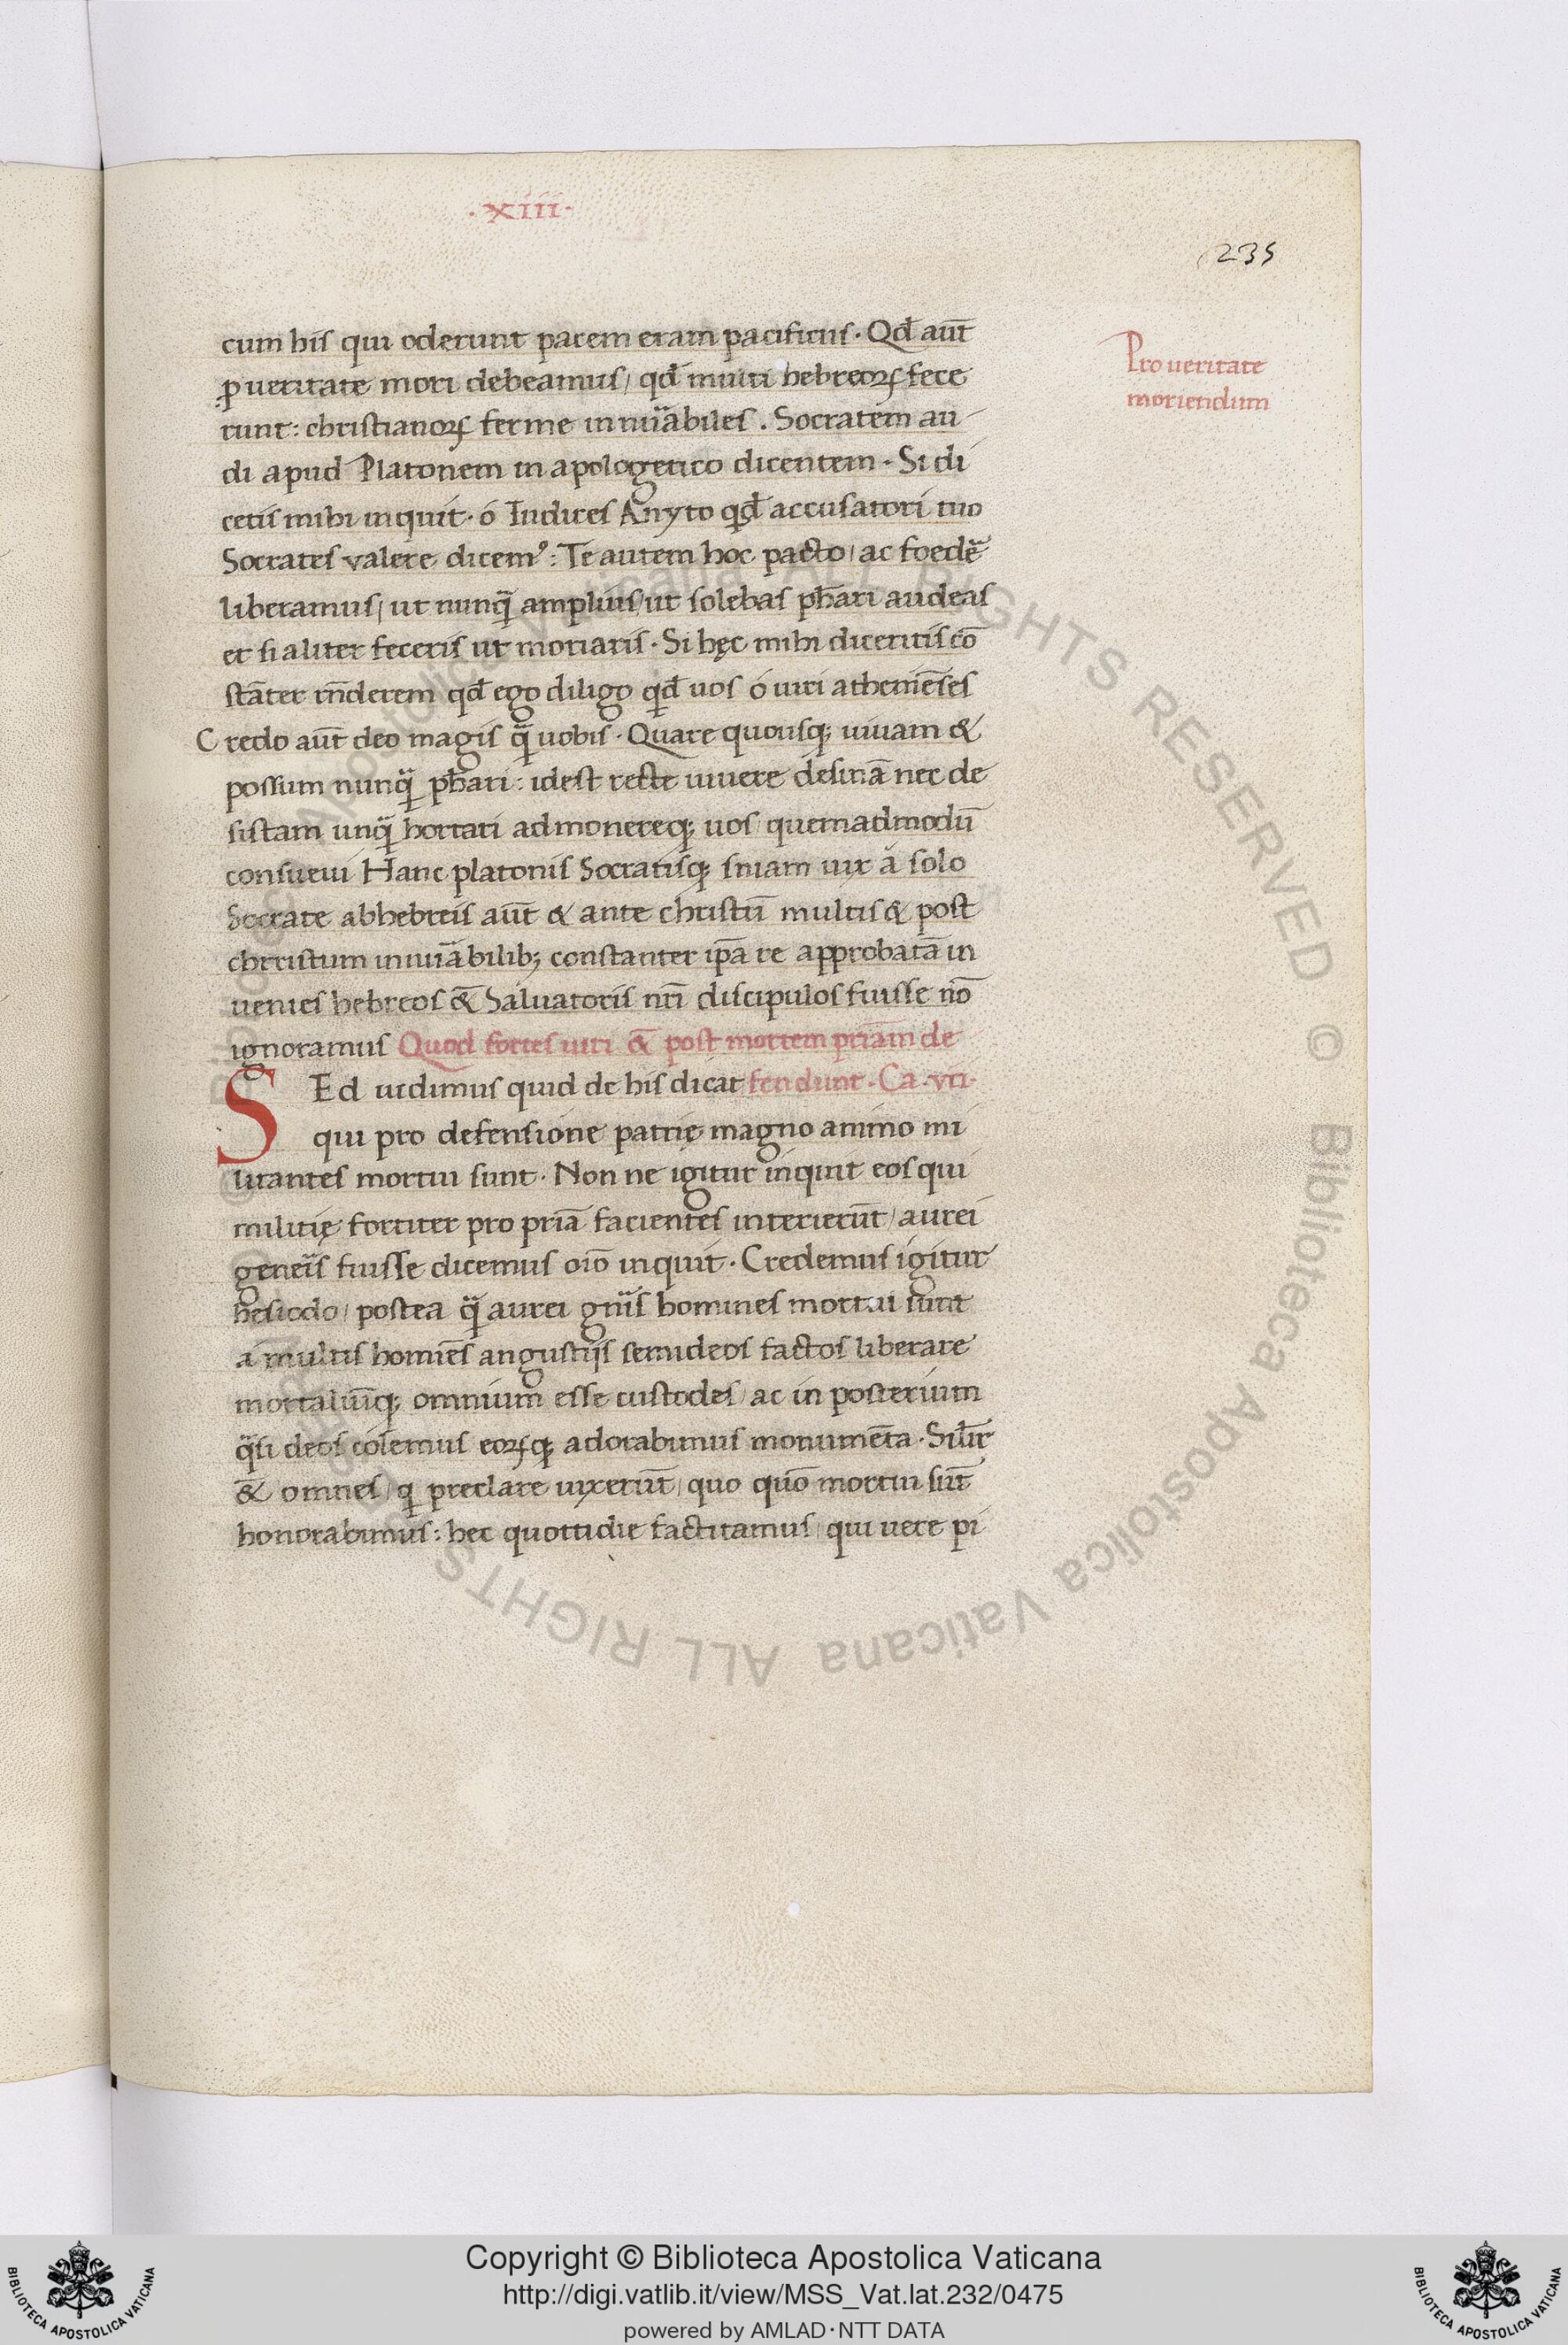 ·xiii·
235
cum his qui oderunt pacem eram pacificus. Qđ aut̄
ꝓ ueritate mori debeamus/ qđ multi hebreoꝝ fece
runt: christianoꝝ ferme innūabiles. Socratem au-
di apud Platonem in apologetico dicentem. Si di
cetis mihi inquit. ó Iudices Anyto qđ accusatori tuo
Socrates valere dicemꝰ: Te autem hoc pacto/ ac foedē
liberamus/ ut nunq̄ amplius/ ut solebas pħari audeas
et si aliter feceris ut moriaris. Si hęc mihi diceritis cō
stāter rn̄derem qđ ego diligo qđ uos ó uiri atheniēses
Credo aut̄ deo magis q̄ uobis. Quare quousq; uiuam &
possum nunq̄ pħari: idest recte uiuere desinā nec de
sistam unq̄ hortari admonereq; uos/ quemadmodū
consueui Hanc platonis Socratisq; sn̄iam uix á solo
Socrate abhebreis aut̄ & ante christū multis & post
christum innūabilib; constanter ip̄a re approbatā in
uenies hebreos & Saluatoris nr̄i discipulos fuisse nō
ignoramus Quod fortes uiri & post mortem pr̄iam de
Sed uidimus quid de his dicat fendunt. Ca. vii.
qui pro defensione patrię magno animo mi
litantes mortui sunt. Non ne igitur inquit eos qui
militię fortiter pro pr̄iā facientes interierūt/ aurei
geneīs fuisse dicemus oīo inquit. Credemus igitur
hesiodo/ postea q̄ aurei gn̄is homines mortui sunt
á multis homīes angustijs semideos factos liberare
mortaliūq; omnium esse custodes/ ac in posterium
q̄si deos colemus eoꝝq; adorabimus monumēta. Silr̄
& omnes/ q preclare uixerūt/ quo quō mortui sūt
honorabimus: hec quottidie factitamus/ qui uere pi
Pro ueritate
moriendum
© Biblioteca Apostolica Vaticana ALL RIGHTS RESERVED © Biblioteca Apostolica Vaticana ALL RIGHTS RESERVED
Copyright © Biblioteca Apostolica Vaticana
http://digi.vatlib.it/view/MSS_Vat.lat.232/0475
powered by AMLAD·NTT DATA
BIBLIOTECA APOSTOLICA VATICANA
BIBLIOTECA APOSTOLICA VATICANA